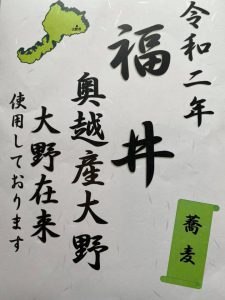 令和二年
福井
奥越産大野
大野在来
使用しております
蕎麦